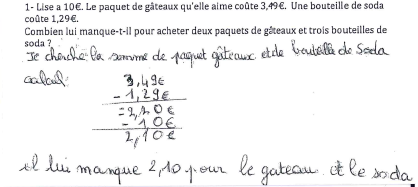 1- Lise a 10€. Le paquet de gâteaux qu'elle aime coûte 3,49€. Une bouteille de soda
coûte 1,29€.
Combien lui manque-t-il pour acheter deux paquets de gâteaux et trois bouteilles de
soda ?
Je cherche la somme de paquet gâteaux et de bouteille de Soda
calcul:
3,49€
- 1,29€
= 2,20€
- 10€
2,10€
il lui manque 2,10 pour le gateau et le soda